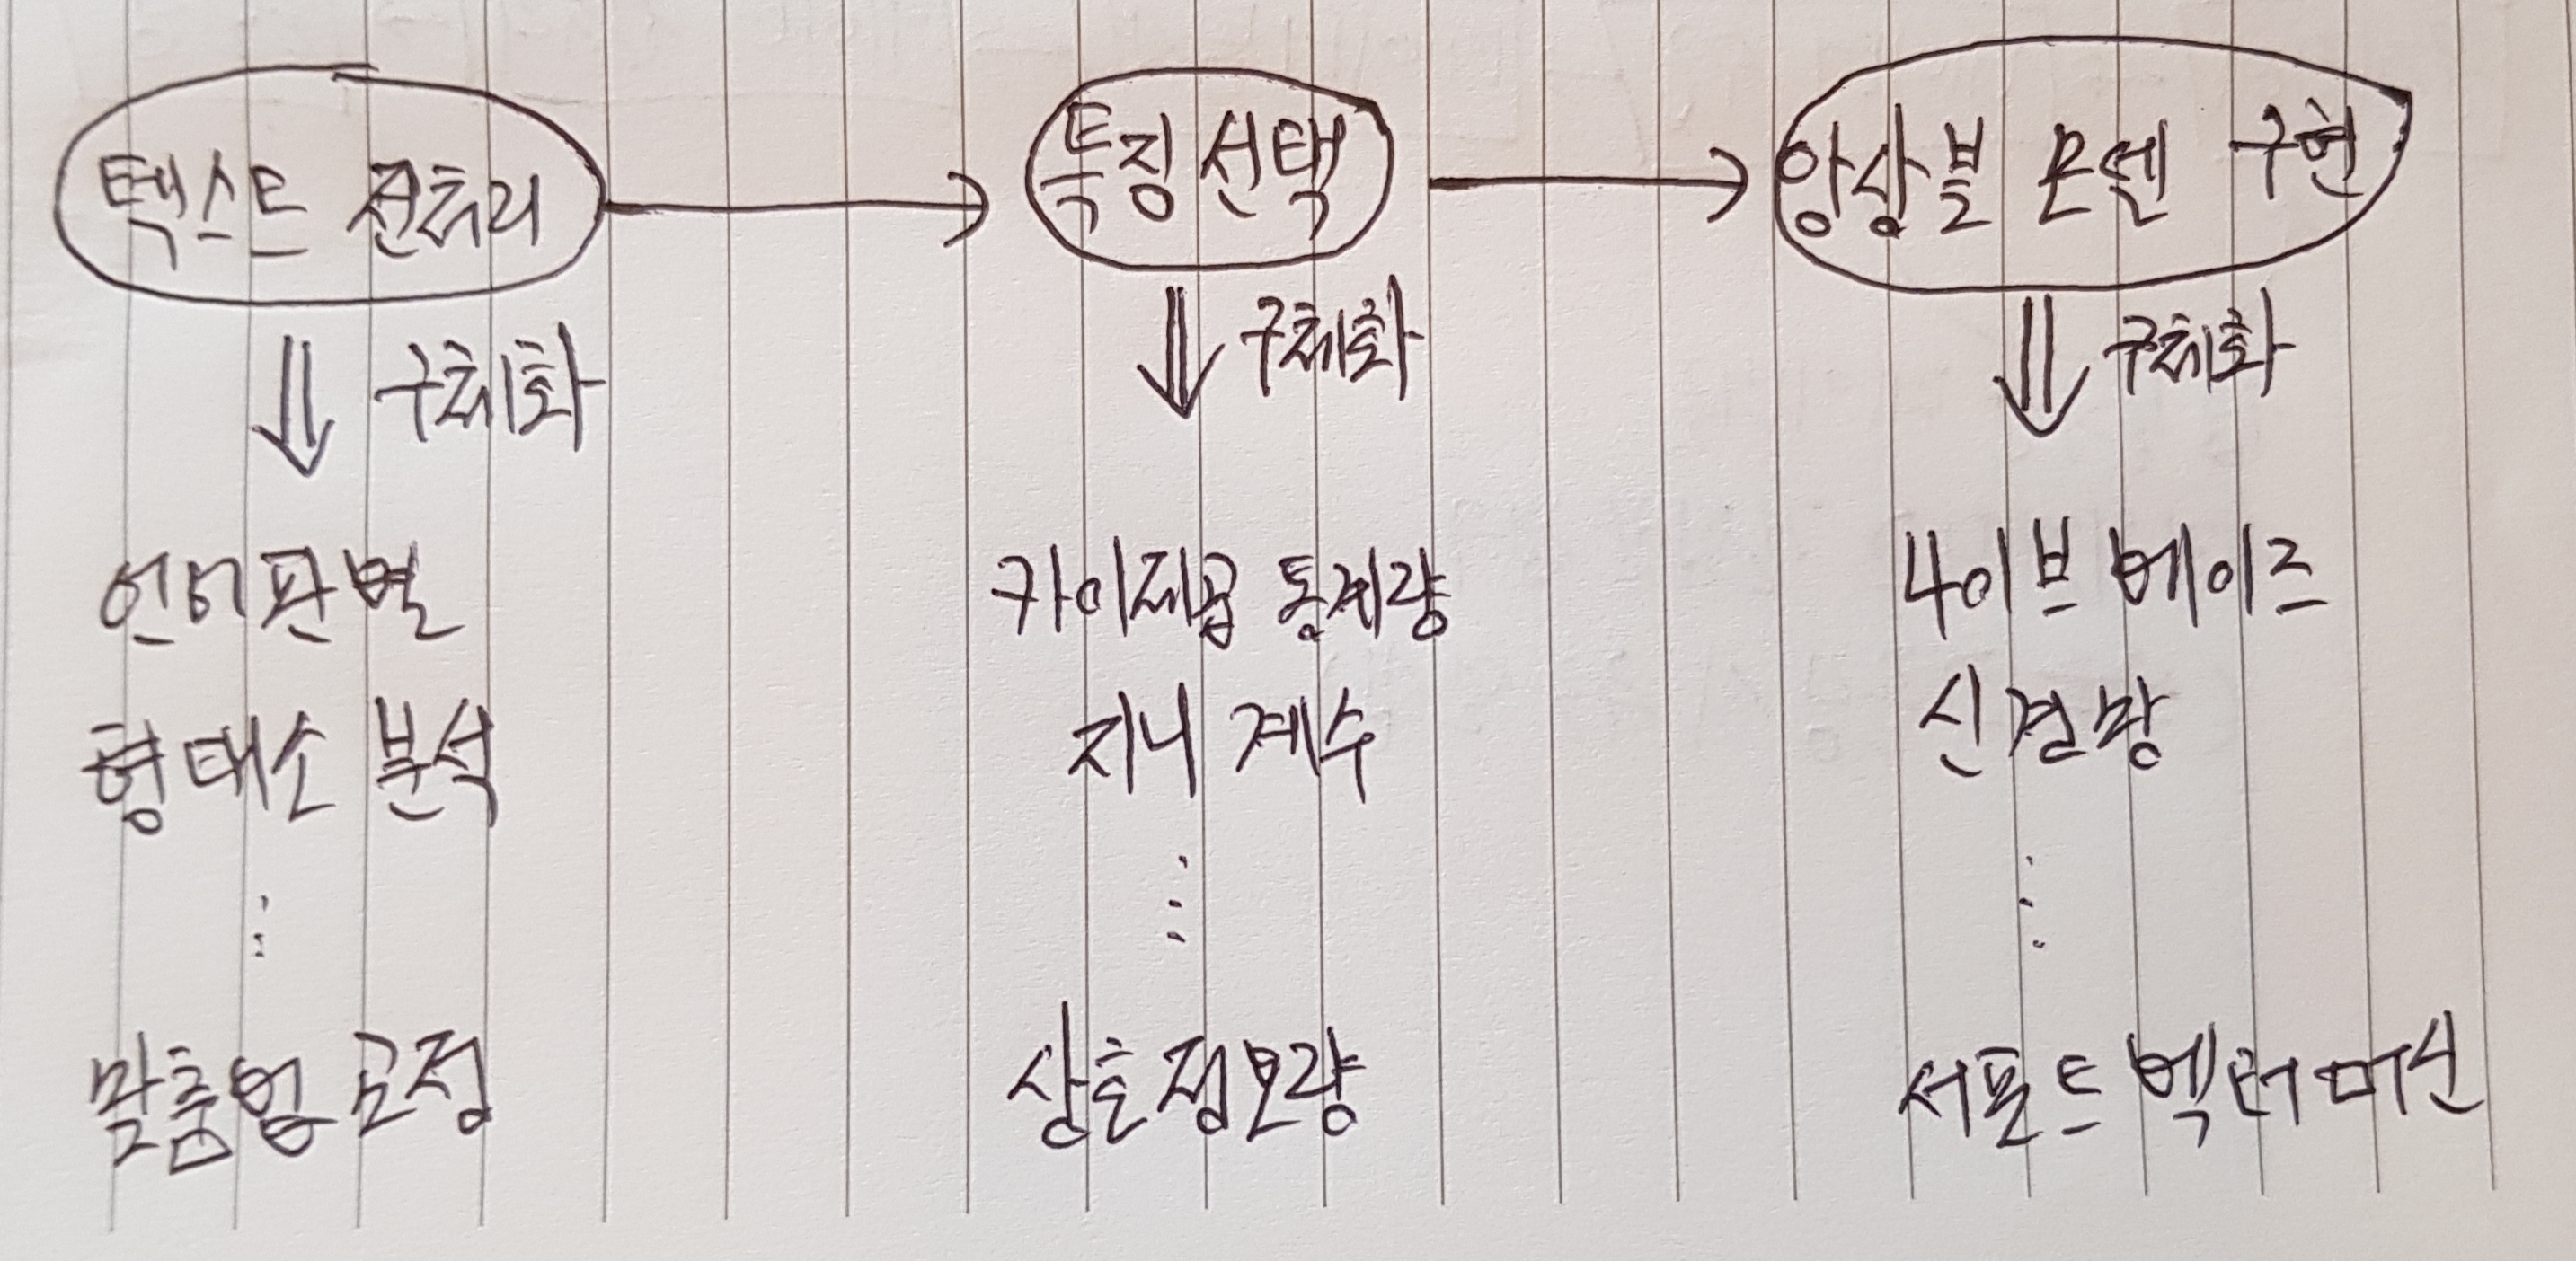 텍스트 전처리
특징 선택
앙상블 모델 구현
구체화
구체화
구체화
언어 판별
형태소 분석
⋮
맞춤법 교정
카이제곱 통계량
지니 계수
⋮
상호 정보량
나이브 베이즈
신경망
⋮
서포트 벡터 머신